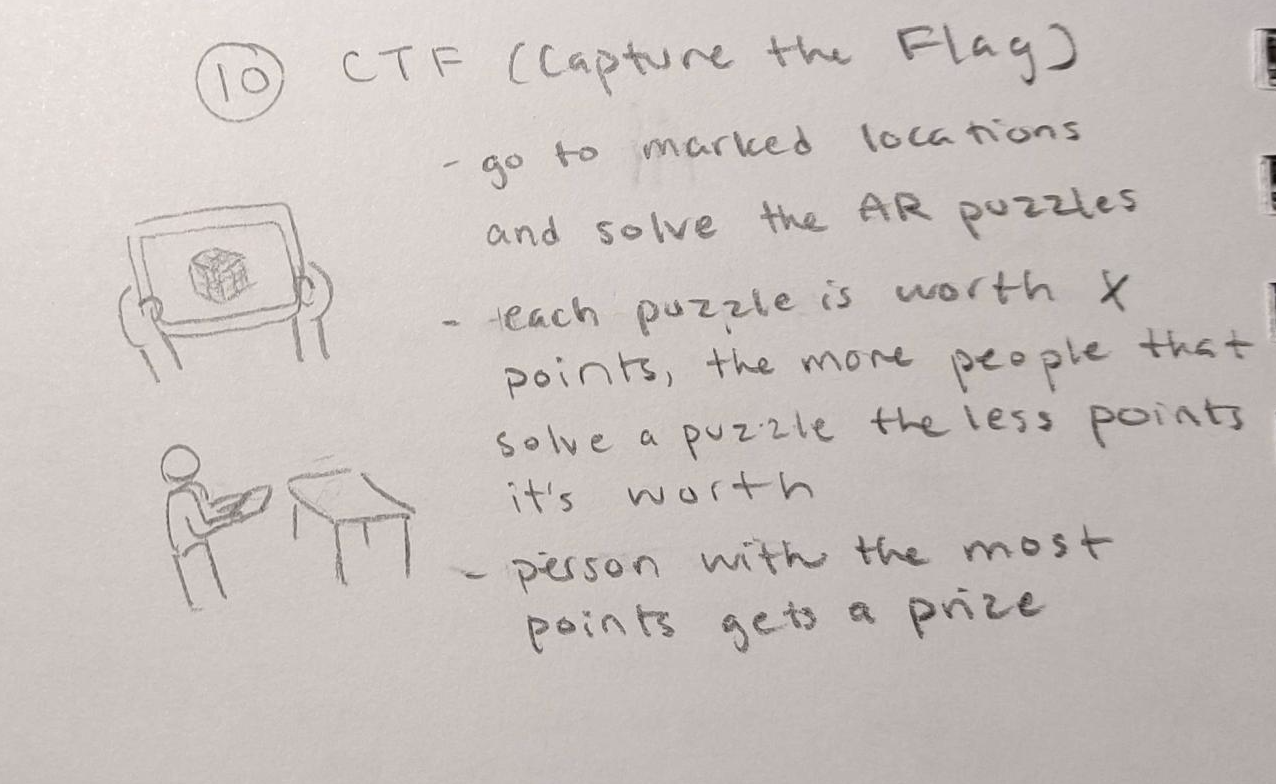 10 CTF (Capture the Flag)
- go to marked locations
and solve the AR puzzles
- each puzzle is worth X
points, the more people that
solve a puzzle the less points
it's worth
- person with the most
points gets a prize